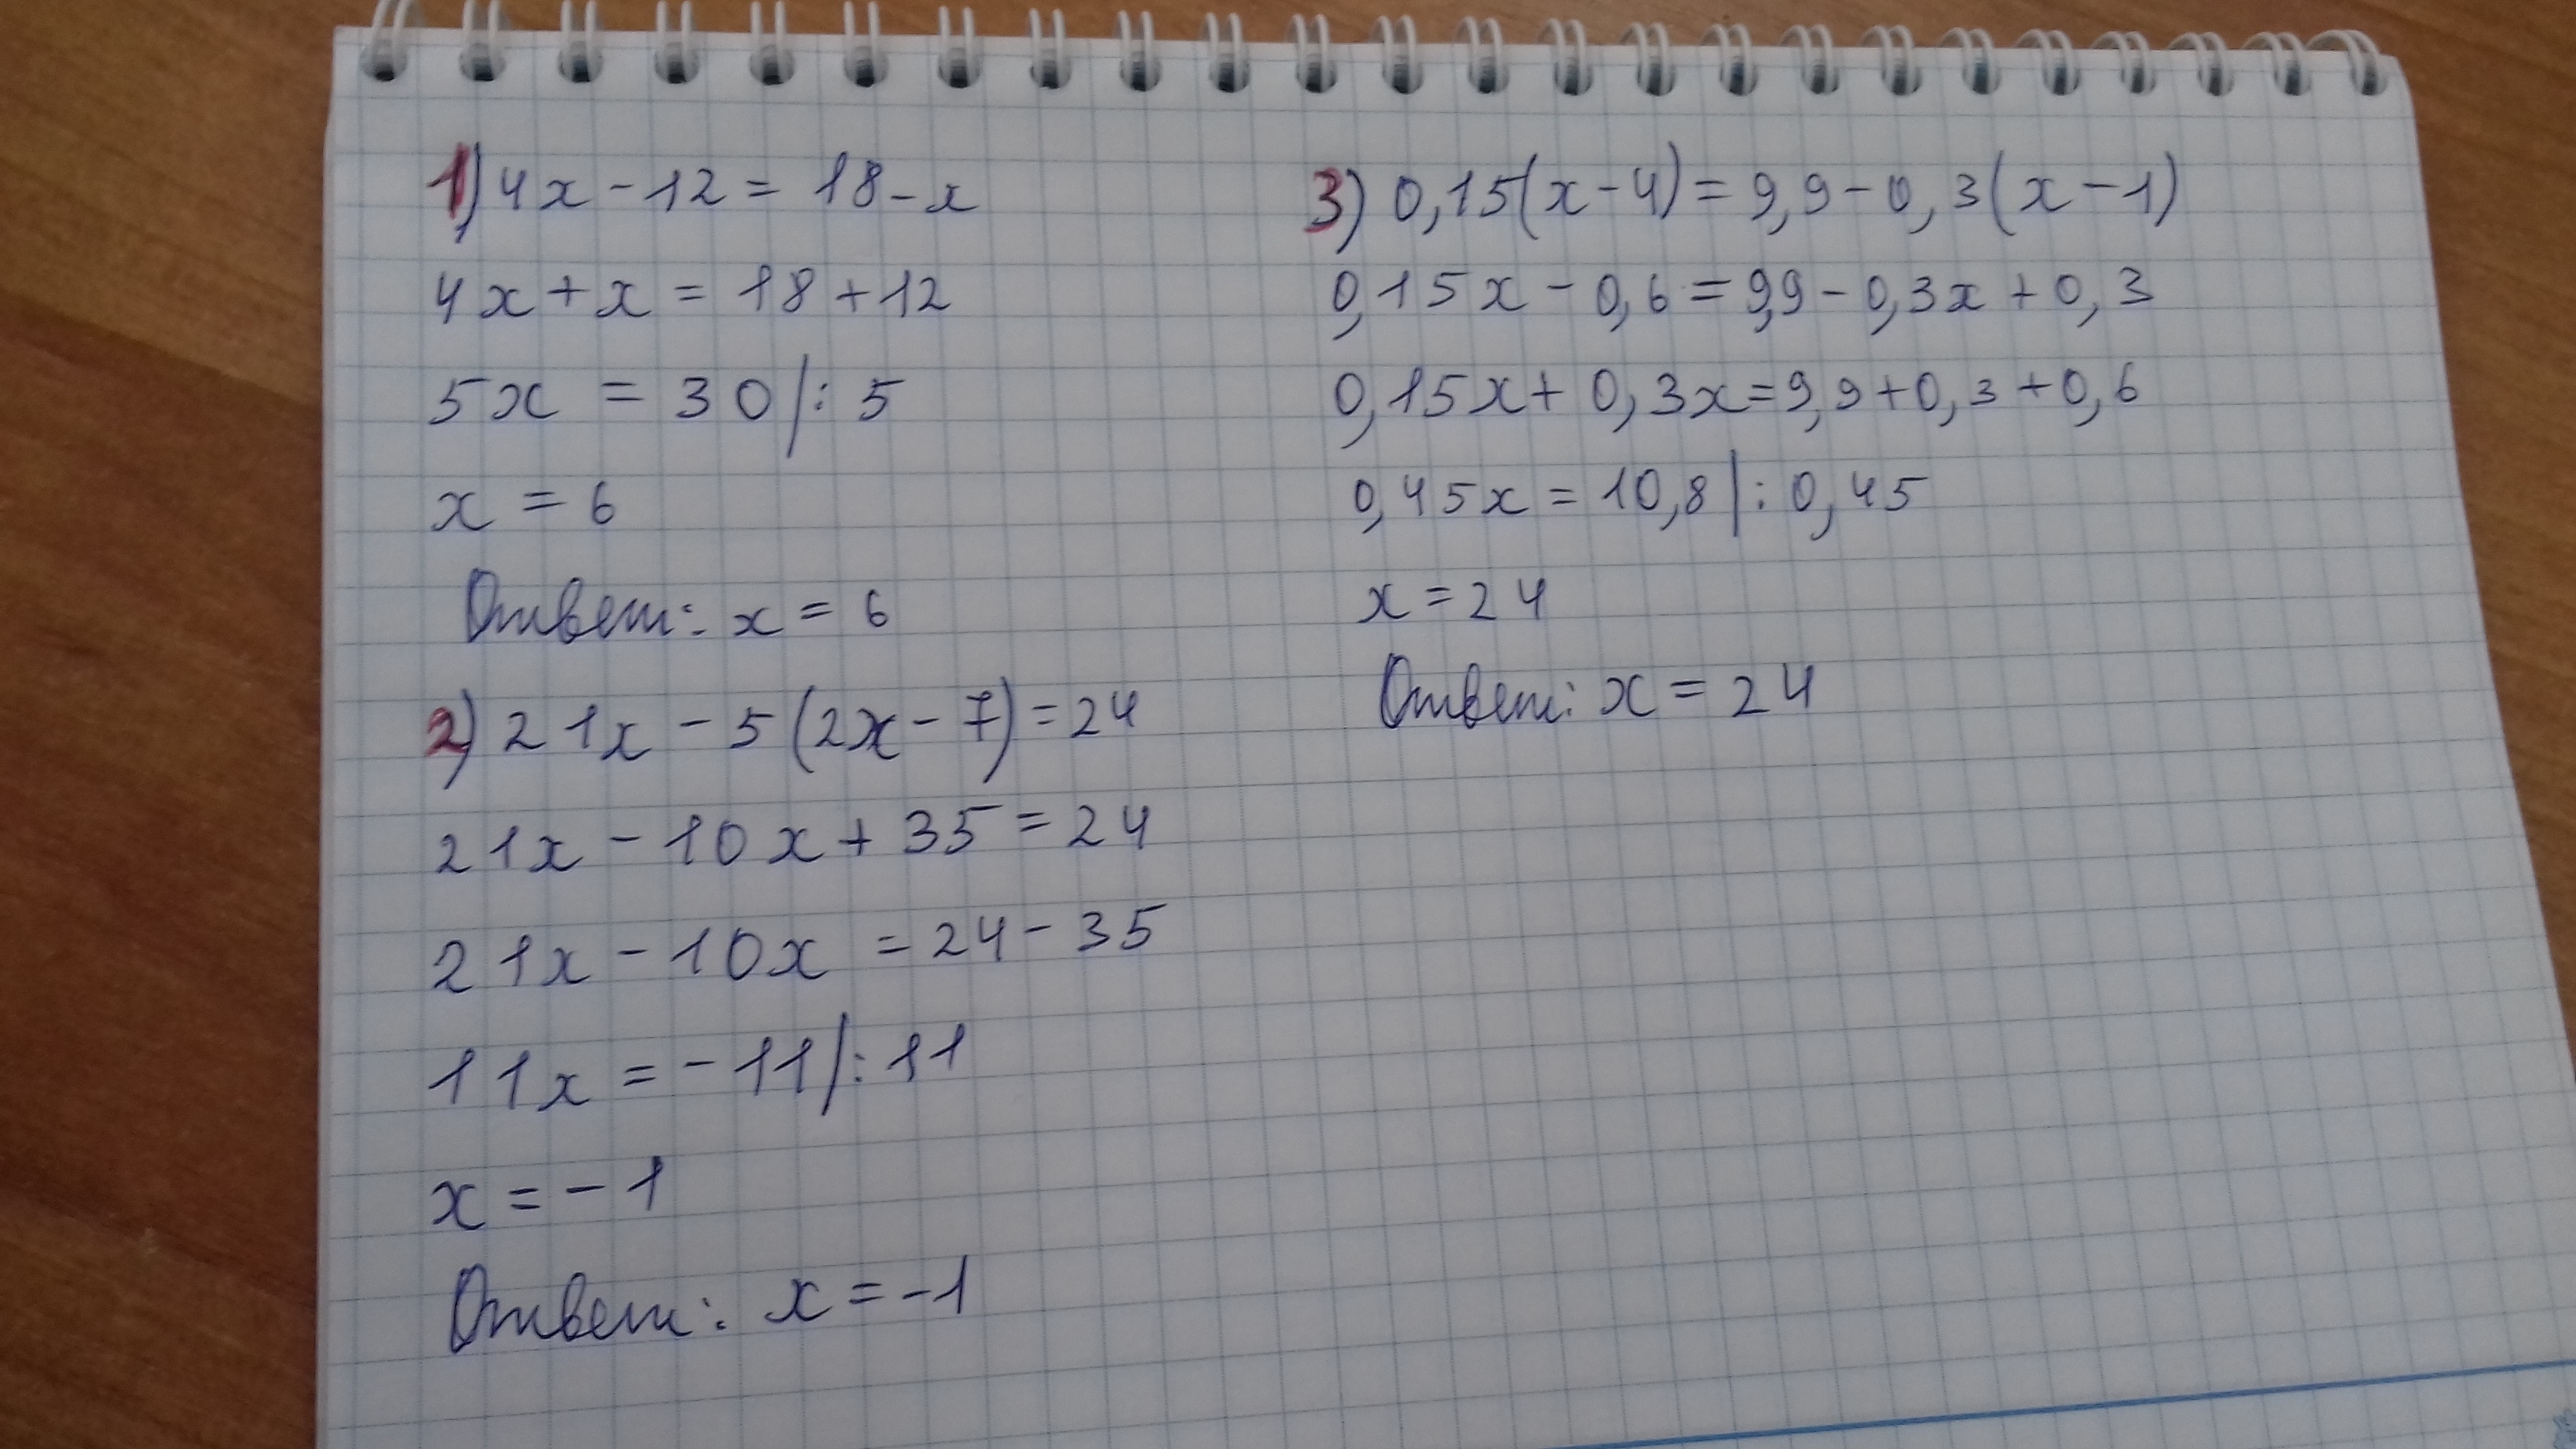 1) 4x - 12 = 18 - x
4x + x = 18 + 12
5x = 30 |: 5
x = 6
Ответ: x = 6
2) 21x - 5(2x - 7) = 24
21x - 10x + 35 = 24
21x - 10x = 24 - 35
11x = -11 |: 11
x = -1
Ответ: x = -1
3) 0,15(x - 4) = 9,9 - 0,3(x - 1)
0,15x - 0,6 = 9,9 - 0,3x + 0,3
0,15x + 0,3x = 9,9 + 0,3 + 0,6
0,45x = 10,8 |: 0,45
x = 24
Ответ: x = 24